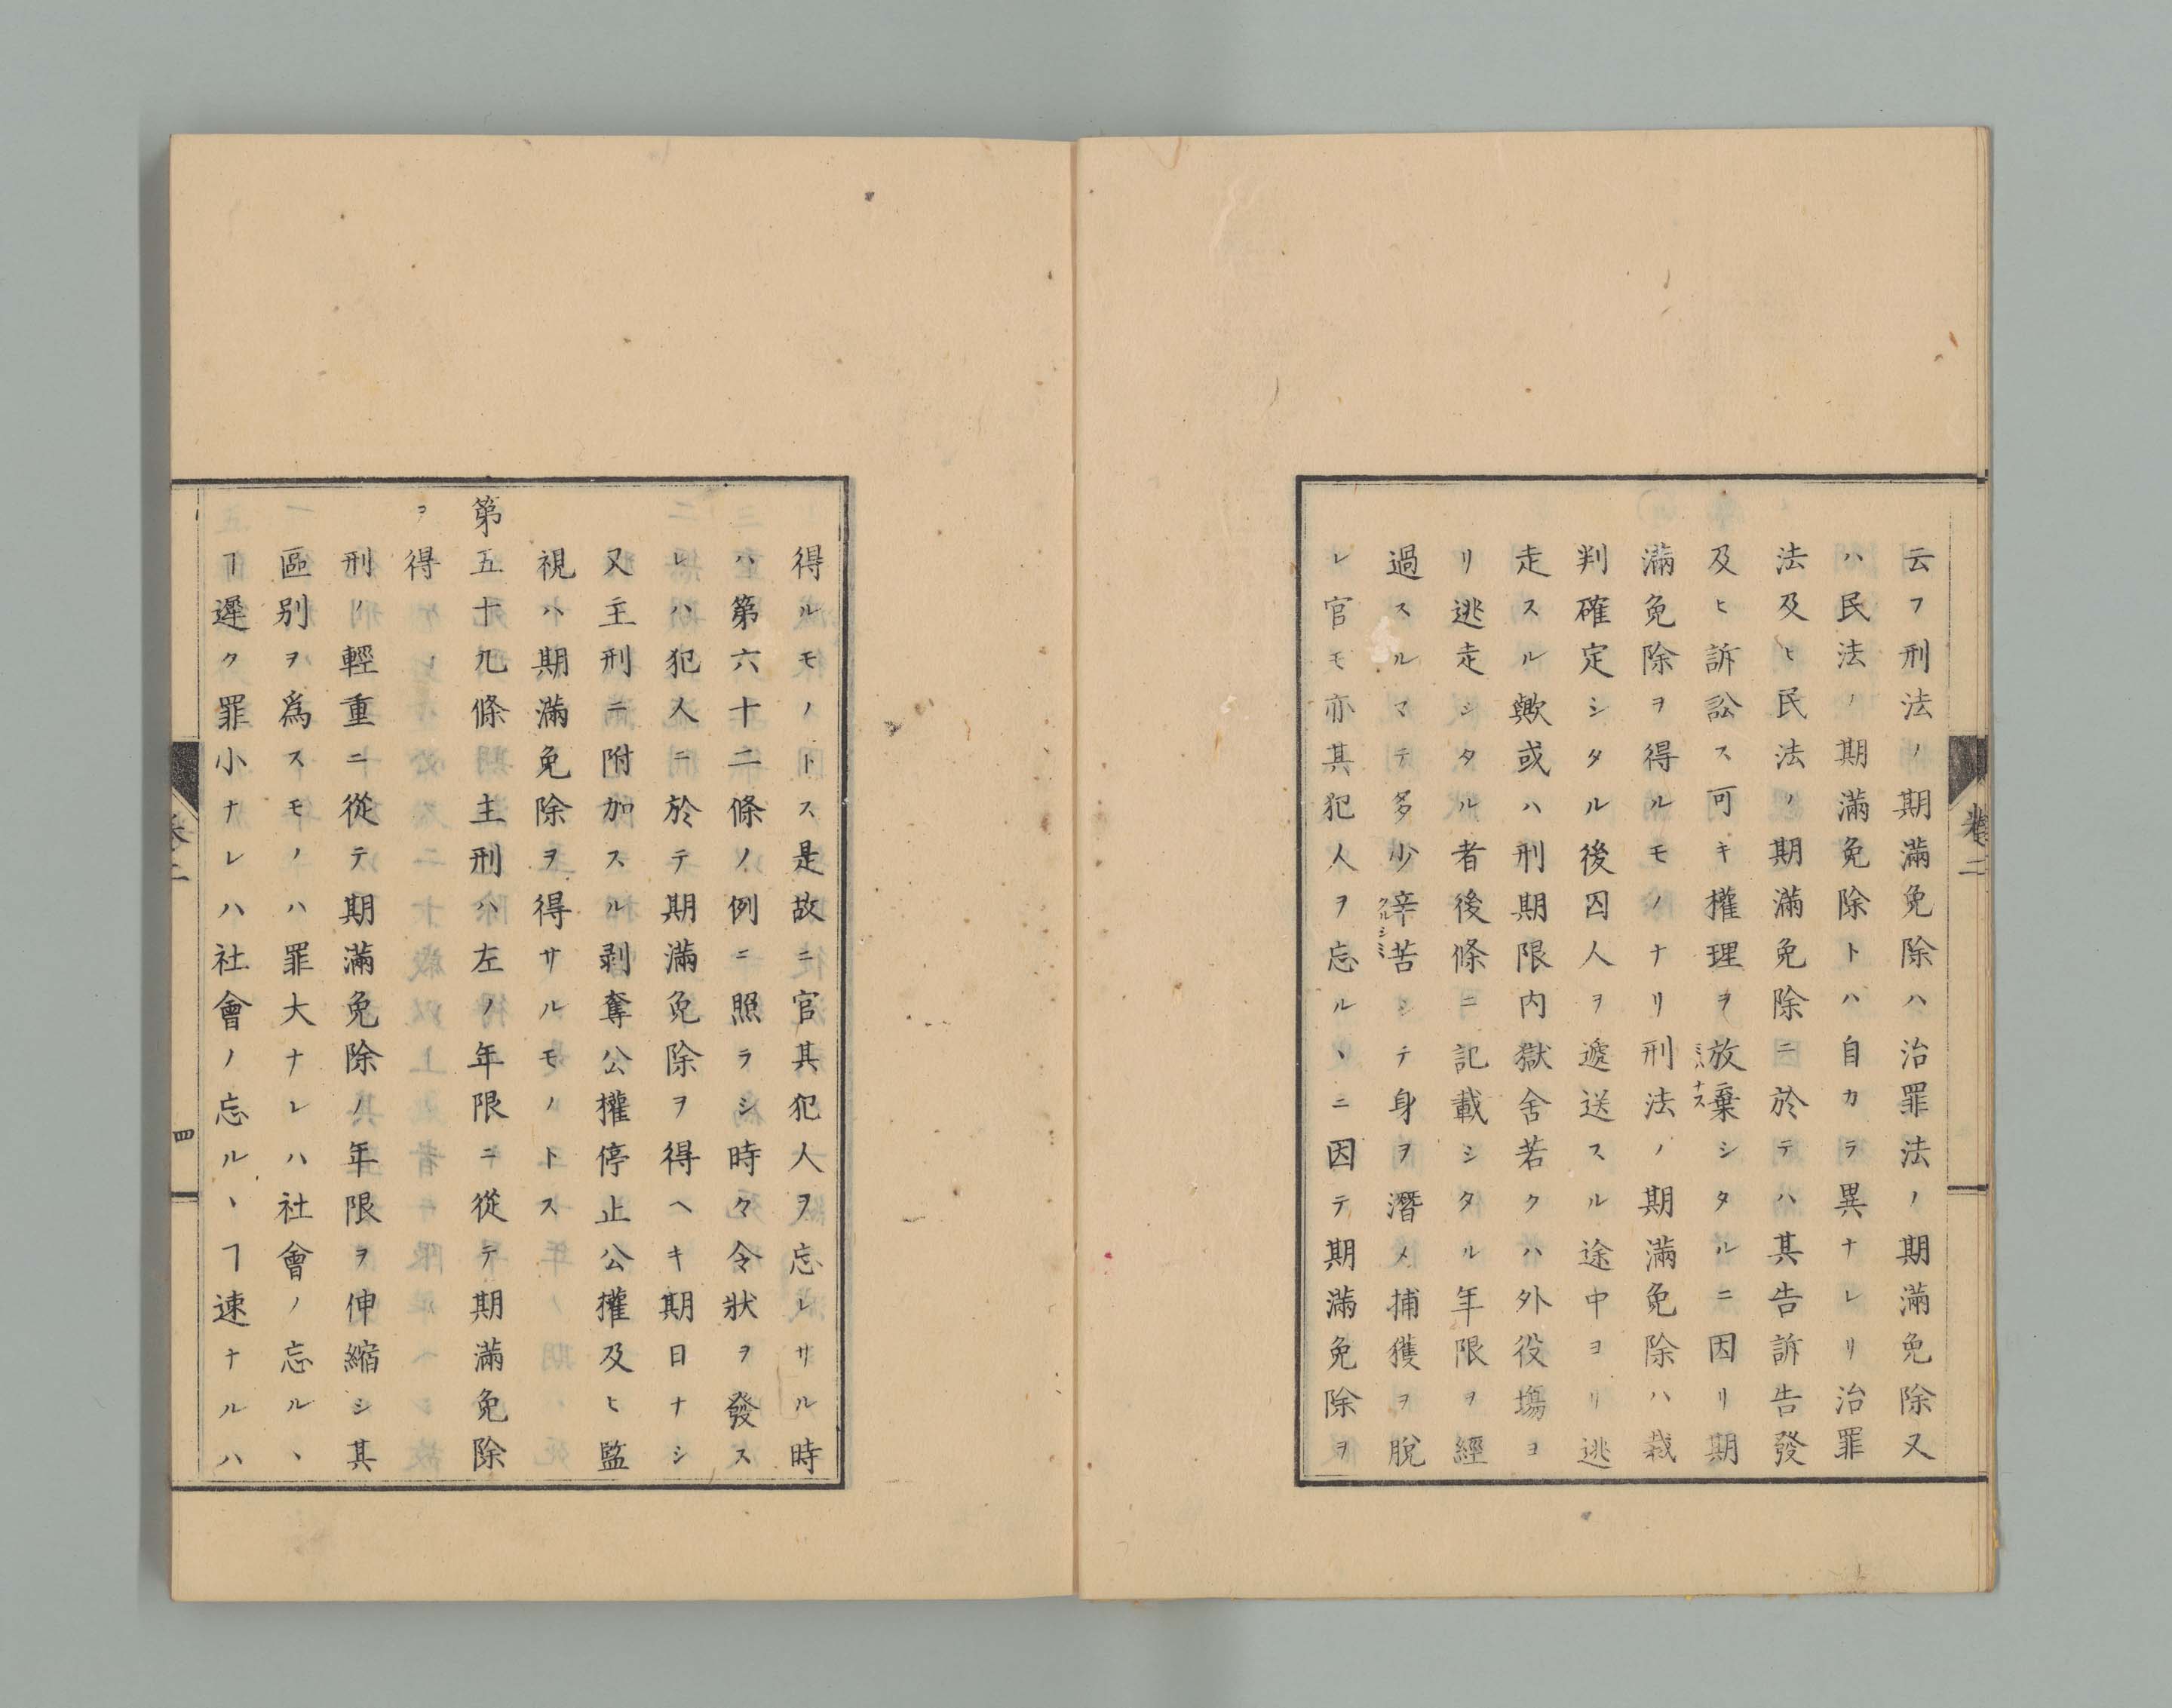 云フ刑法ノ期滿免除ハ治罪法ノ期滿免除又
ハ民法ノ期滿免除トハ自カラ異ナレリ治罪
法及ヒ民法ノ期滿免除ニ於テハ其告訴告發
及ヒ訴訟ス可キ權理ヲ放棄シタルニ因リ期
滿免除ヲ得ルモノナリ刑法ノ期滿免除ハ裁
判確定シタル後囚人ヲ遞送スル途中ヨリ逃
走スル歟或ハ刑期限内獄舍若クハ外役塲ヨ
リ逃走シタル者後條ニ記載シタル年限ヲ經
過スルマテ多少辛苦シテ身ヲ潛メ捕獲ヲ脫
クルシミ
レ官モ亦其犯人ヲ忘ルヽニ因テ期滿免除ヲ
卷二
得ルモノトス是故ニ官其犯人ヲ忘レサル時
ハ第六十二條ノ例ニ照ラシ時々令狀ヲ發ス
レハ犯人ニ於テ期滿免除ヲ得ヘキ期日ナシ
又主刑ニ附加スル剥奪公權停止公權及ヒ監
視ハ期滿免除ヲ得サルモノトス
第五十九條主刑ハ左ノ年限ニ從テ期滿免除
ヲ得
刑ノ輕重ニ從テ期滿免除ノ年限ヲ伸縮シ其
區別ヲ爲スモノハ罪大ナレハ社會ノ忘ルヽ
ヿ遲ク罪小ナレハ社會ノ忘ルヽヿ速ナルハ
卷二
四